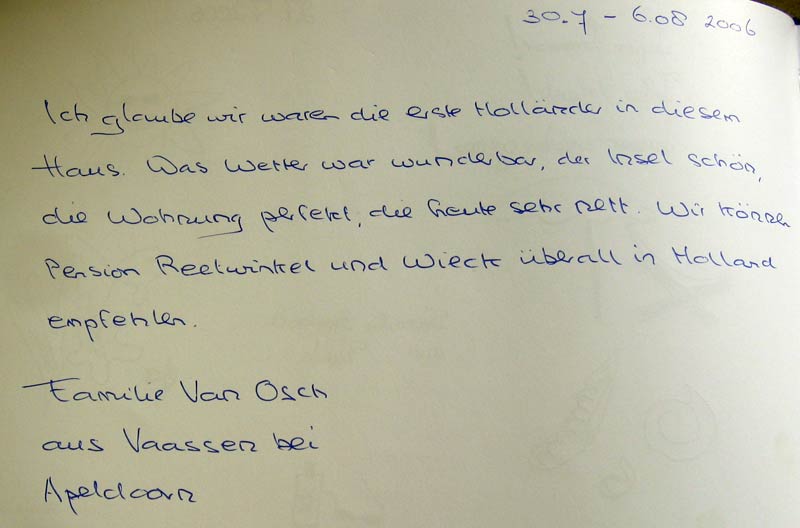 30.7 - 6.08 2006
Ich glaube wir waren die erste Holländer in diesem
Haus. Das Wetter war wunderbar, der Insel schön,
die Wohnung perfekt, die Leute sehr nett. Wir können
Pension Reetwinkel und Wieck überall in Holland
empfehlen.
Familie Van Osch
aus Vaassen bei
Apeldoorn